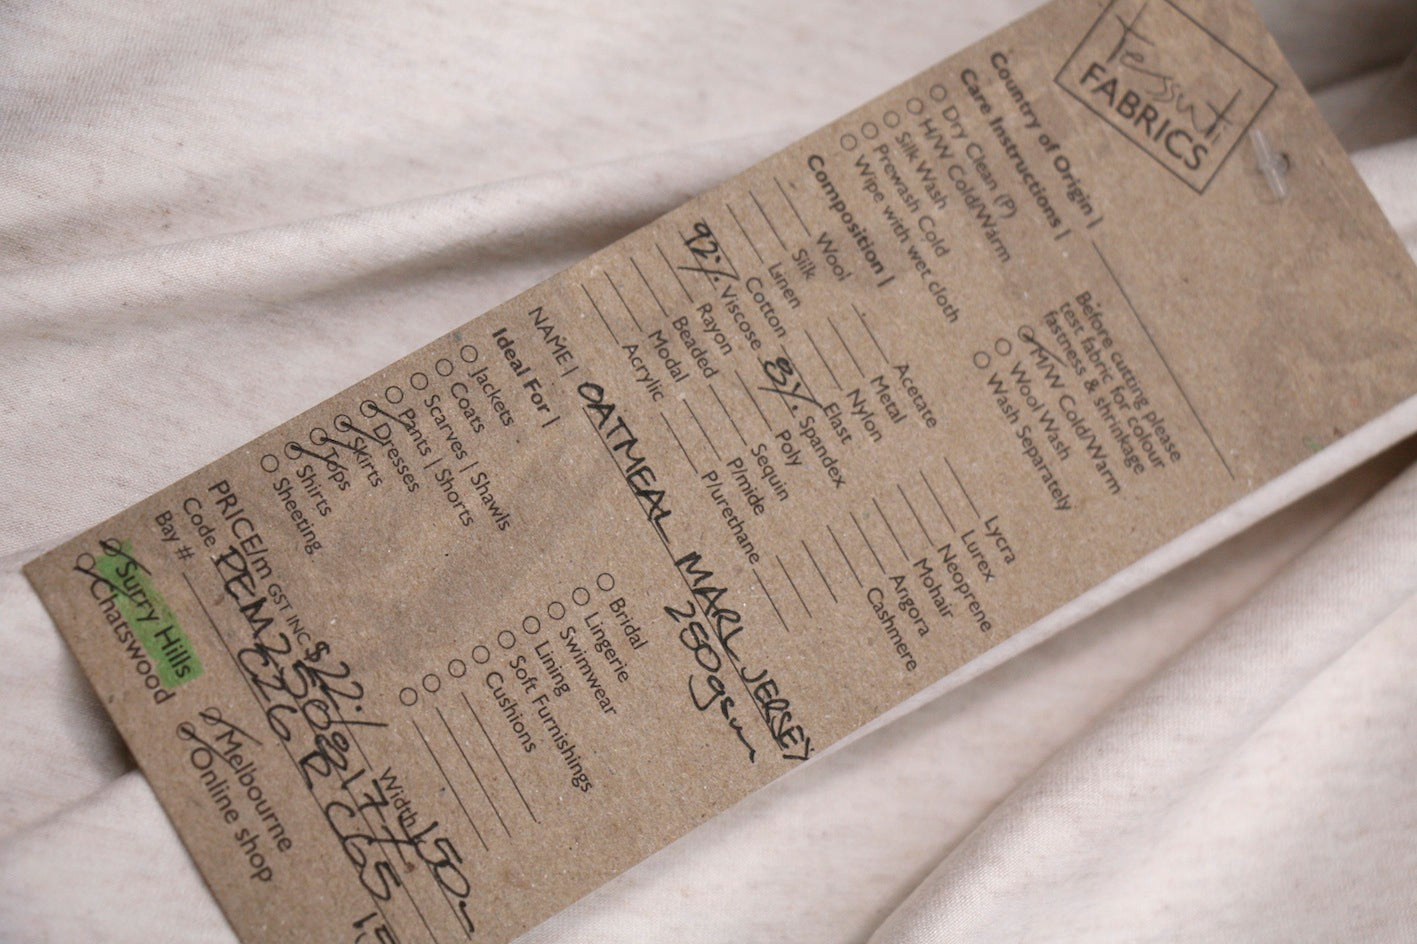 Tessuti
FABRICS
Country of Origin |
Care Instructions |
Dry Clean (P)
H/W Cold/Warm
Silk Wash
Prewash Cold
Wipe with wet cloth
Before cutting please
test fabric for colour
fastness & shrinkage
M/W Cold/Warm
Wool Wash
Wash Separately
Composition |
Wool
Silk
Linen
Cotton
92% Viscose
Rayon
Beaded
Modal
Acrylic
Acetate
Metal
Nylon
Elast
8% Spandex
Poly
Sequin
P/mide
P/urethane
Lycra
Lurex
Neoprene
Mohair
Angora
Cashmere
NAME | OATMEAL MARL JERSEY
250gsm
Ideal For |
Jackets
Coats
Scarves | Shawls
Pants | Shorts
Dresses
Skirts
Tops
Shirts
Sheeting
Bridal
Lingerie
Swimwear
Lining
Soft Furnishings
Cushions
PRICE/m GST INC $22.
Width 150
Code
Bay #
Surry Hills
Chatswood
Melbourne
Online shop